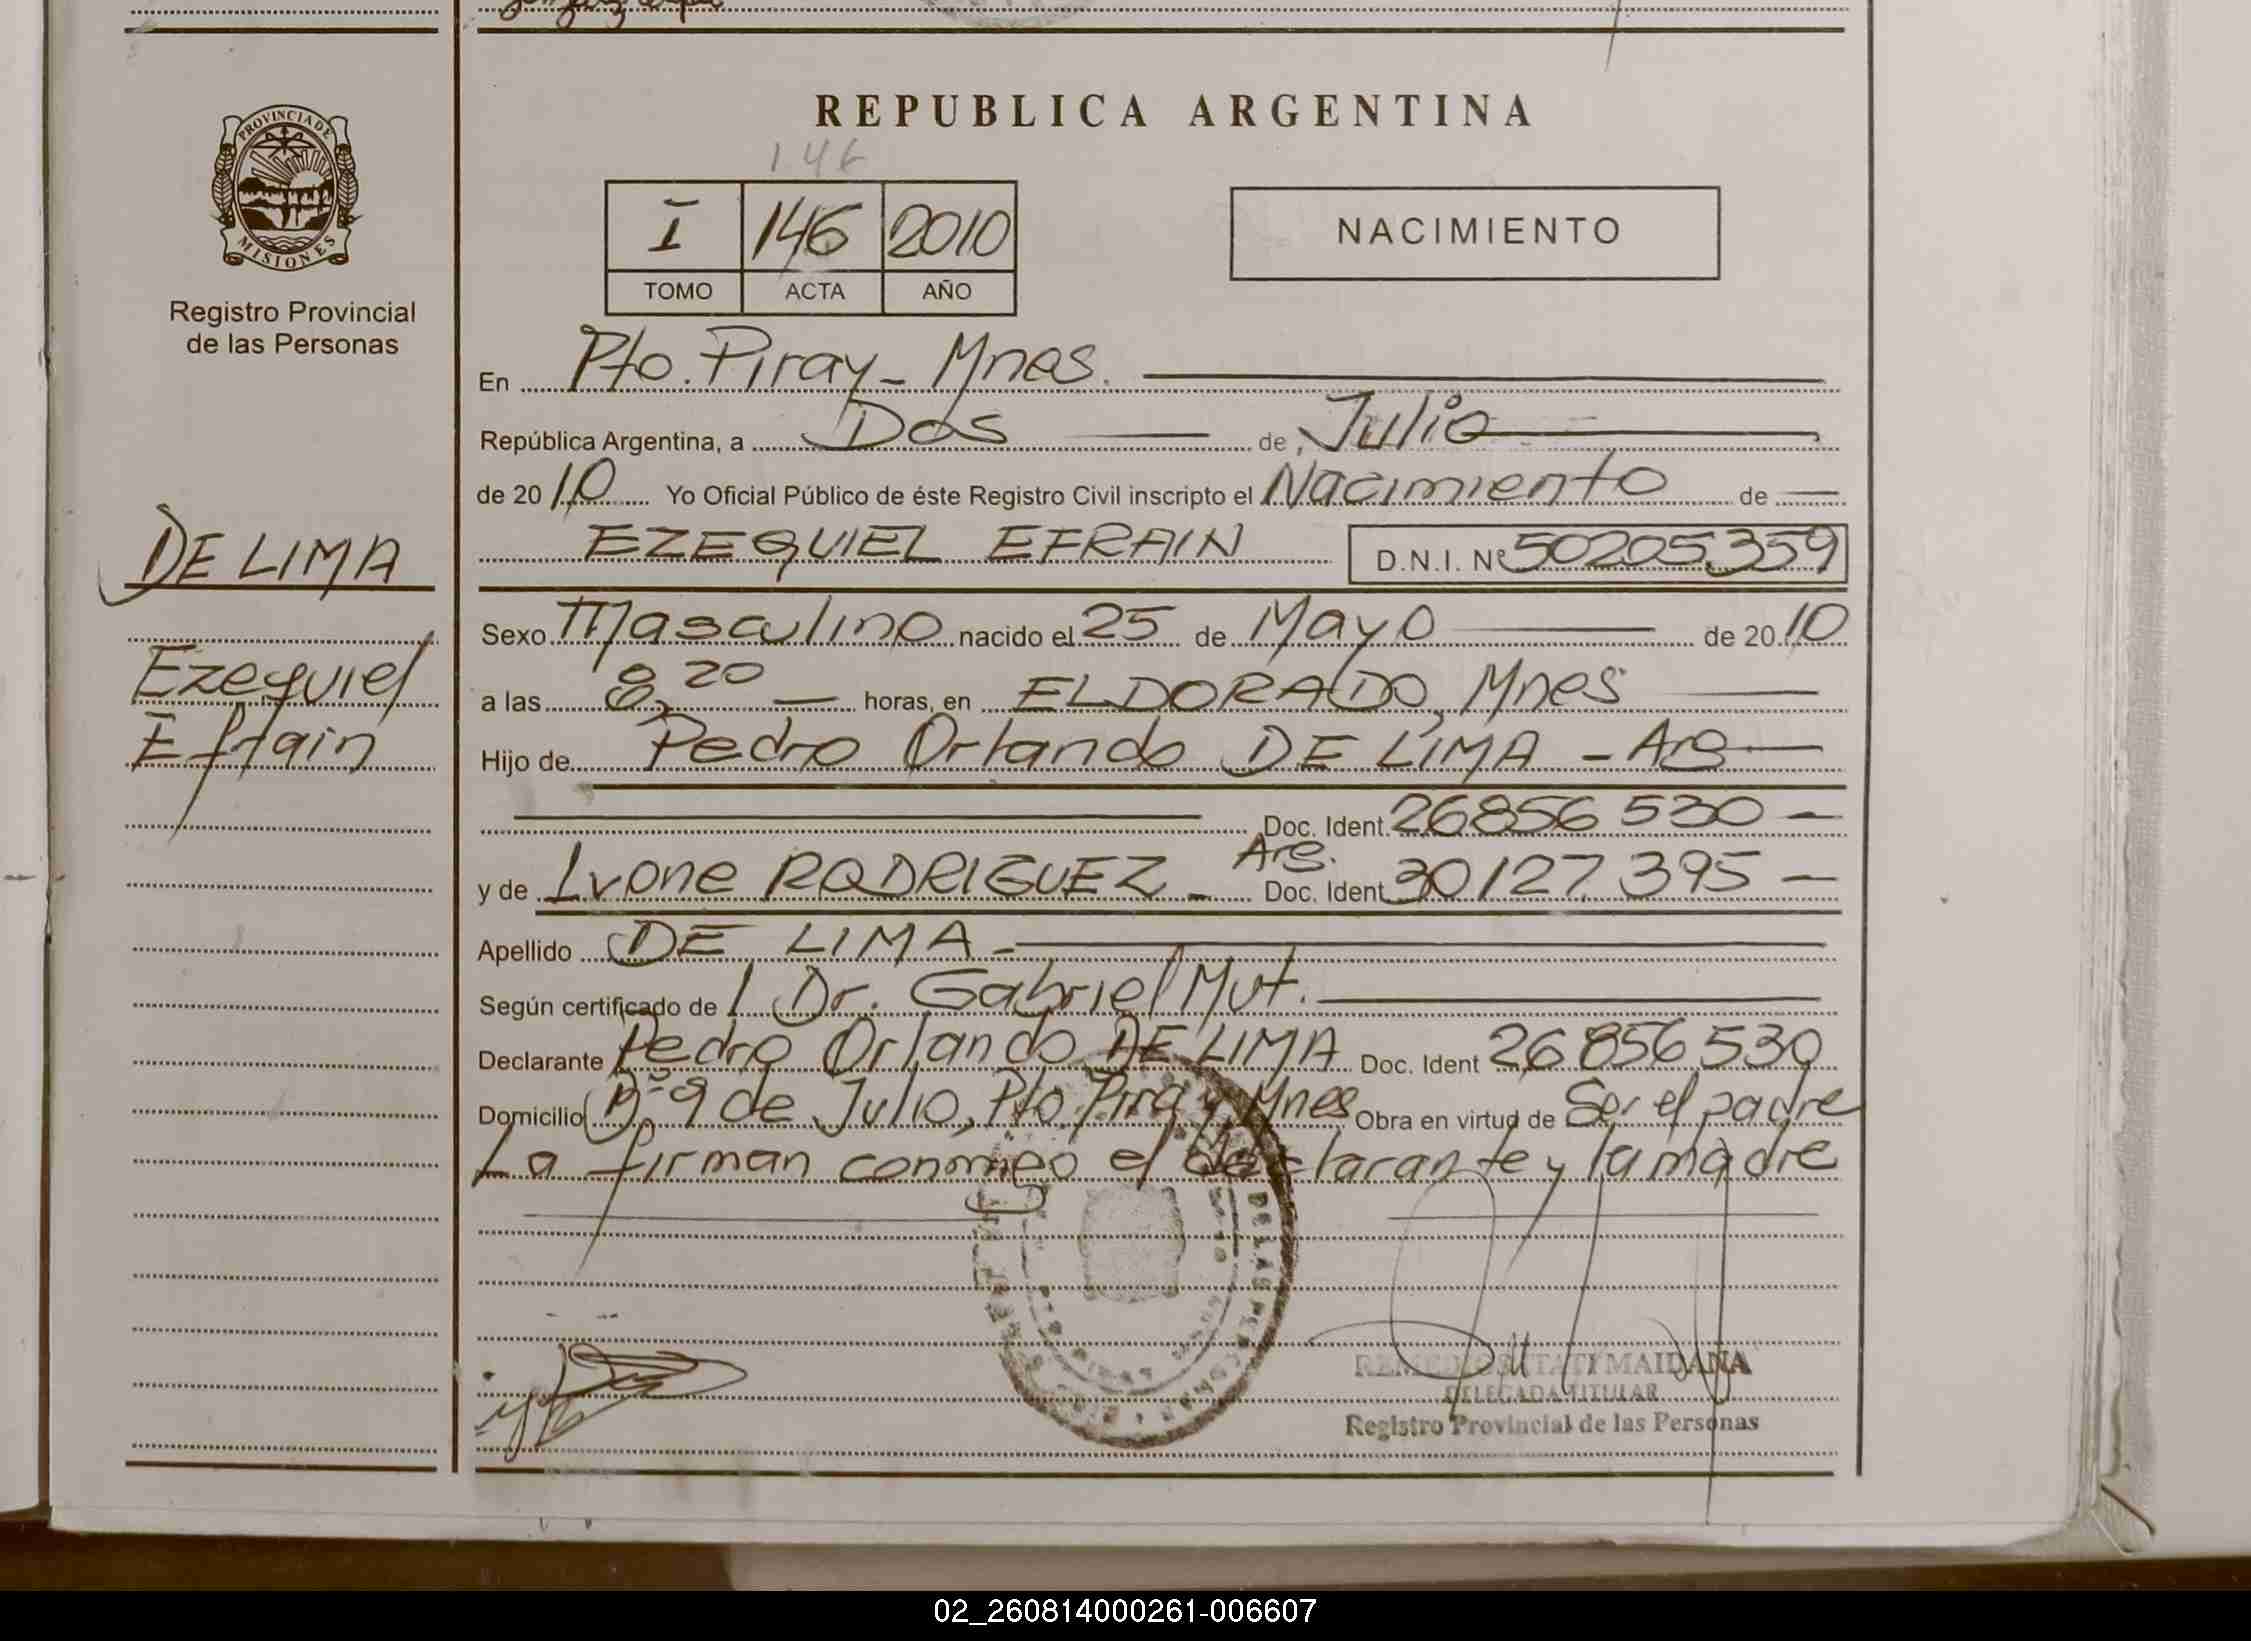 REPUBLICA ARGENTINA
146
PROVINCIA DE
MISIONES
Registro Provincial
de las Personas
I 146 2010
TOMO ACTA AÑO
NACIMIENTO
En Pto. Piray - Mnes.
República Argentina, a Dos de Julio
de 2010 Yo Oficial Público de éste Registro Civil inscripto el Nacimiento de
EZEQUIEL EFRAIN D.N.I. Nº 50205.359
DE LIMA
Ezequiel
Efrain
Sexo Masculino nacido el 25 de Mayo de 2010
a las 8,20 horas, en ELDORADO, Mnes
Hijo de Pedro Orlando DE LIMA - Arg
Doc. Ident. 26856530
y de Ivone RODRIGUEZ - Arg. Doc. Ident 30127.395
Apellido DE LIMA -
Según certificado de / Dr. Gabriel Mut.
Declarante Pedro Orlando DE LIMA Doc. Ident 26856530
Domicilio Bº 9 de Julio, Pto. Piray Mnes Obra en virtud de Ser el padre
La firman conmigo el declarante y la madre
DE LAS PERSONAS
MAIDANA
DELEGADA TITULAR
Registro Provincial de las Personas
02_260814000261-006607